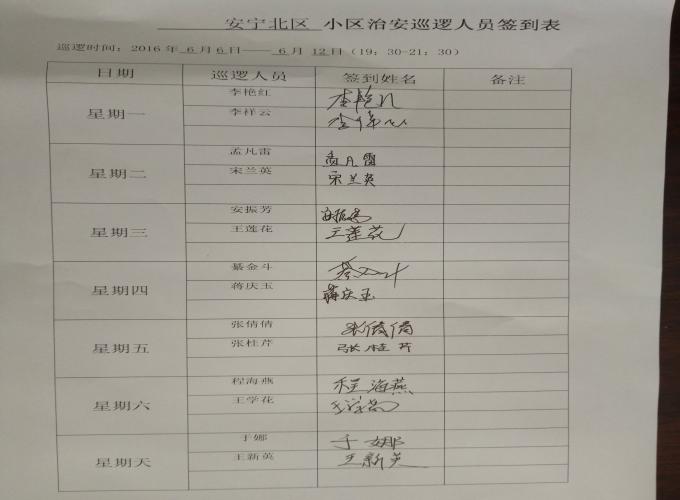 安宁北区 小区治安巡逻人员签到表
巡逻时间：2016年 6月 6日—— 6月 12日（19：30-21：30）
日期 巡逻人员 签到姓名 备注
星期一
李艳红 李艳红
李祥云 李祥云
星期二
孟凡雷 孟凡雷
宋兰英 宋兰英
星期三
安振芳 安振芳
王莲花 王莲花
星期四
綦金斗 綦金斗
蒋庆玉 蒋庆玉
星期五
张倩倩 张倩倩
张桂芹 张桂芹
星期六
程海燕 程海燕
王学花 王学花
星期天
于娜 于娜
王新英 王新英